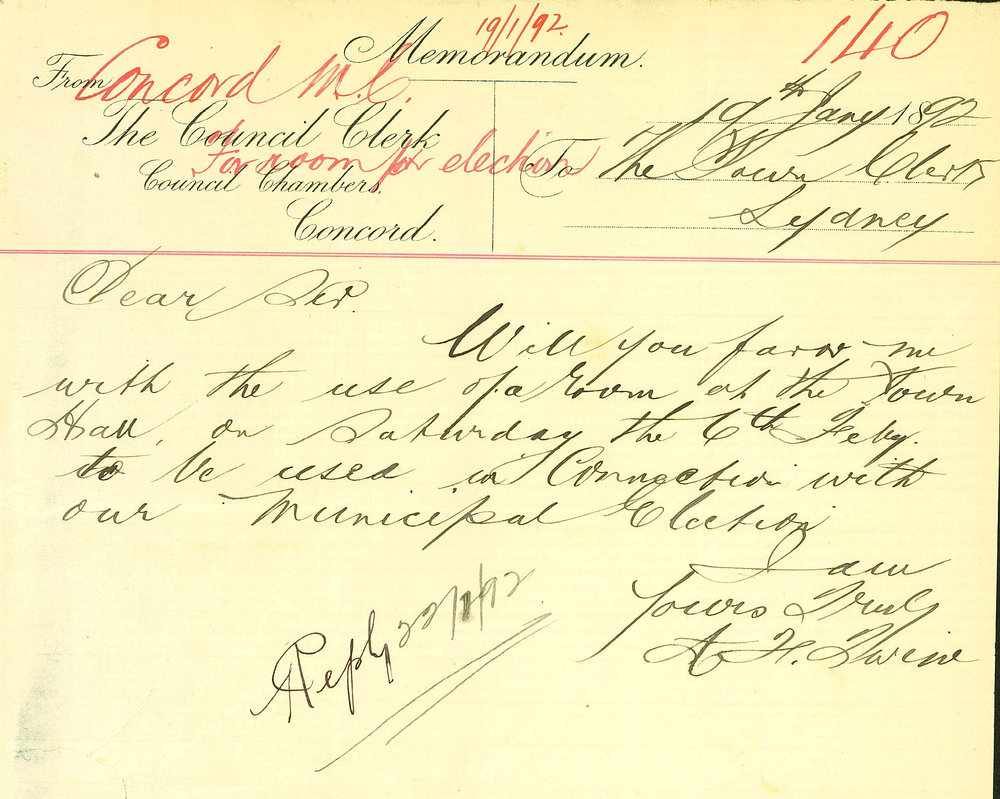 19/1/92.
140
Memorandum.
From
Concord M.C.
19th Jany 1892
The Council Clerk
For room for election
To The Town Clerk
Council Chambers,
Sydney
Concord.
Dear Sir.
Will you favor me
with the use of a room at the Town
Hall, on Saturday the 6th Feby.
to be used in Connection with
our Municipal Election
I am
Yours Truly
H.
Reply 22/1/92